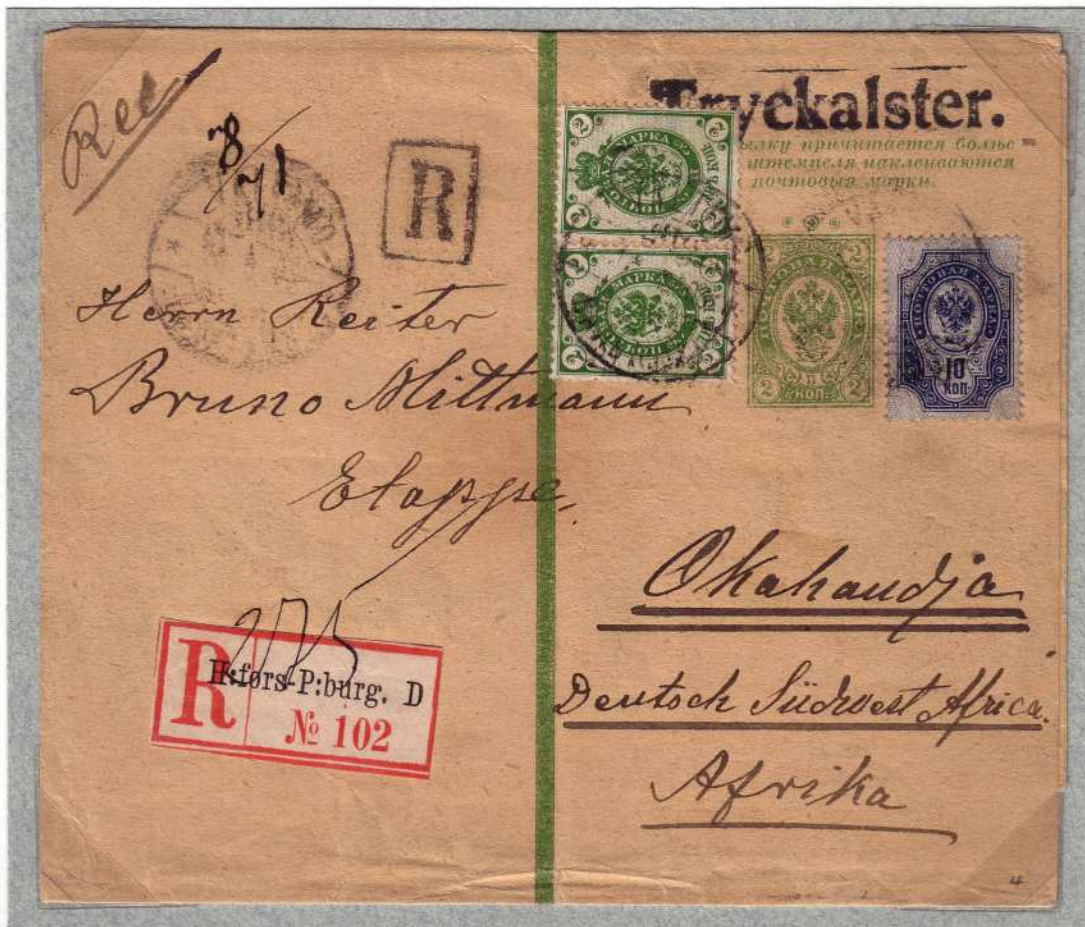 Rec
Tryckalster.
причитается болѣе
штемпеля наклеиваются
почтовыя марки.
R
2 2
МАРКА
2 2
2 2
МАРКА
2 2
2 2
2 КОП. 2
ПОЧТОВАЯ МАРКА
10
КОП.
Herrn Reiter
Bruno Mittmann
Etappe.
Okahandja
Deutsch Südwest Africa.
Afrika
275
R H:fors-P:burg. D
№ 102
4